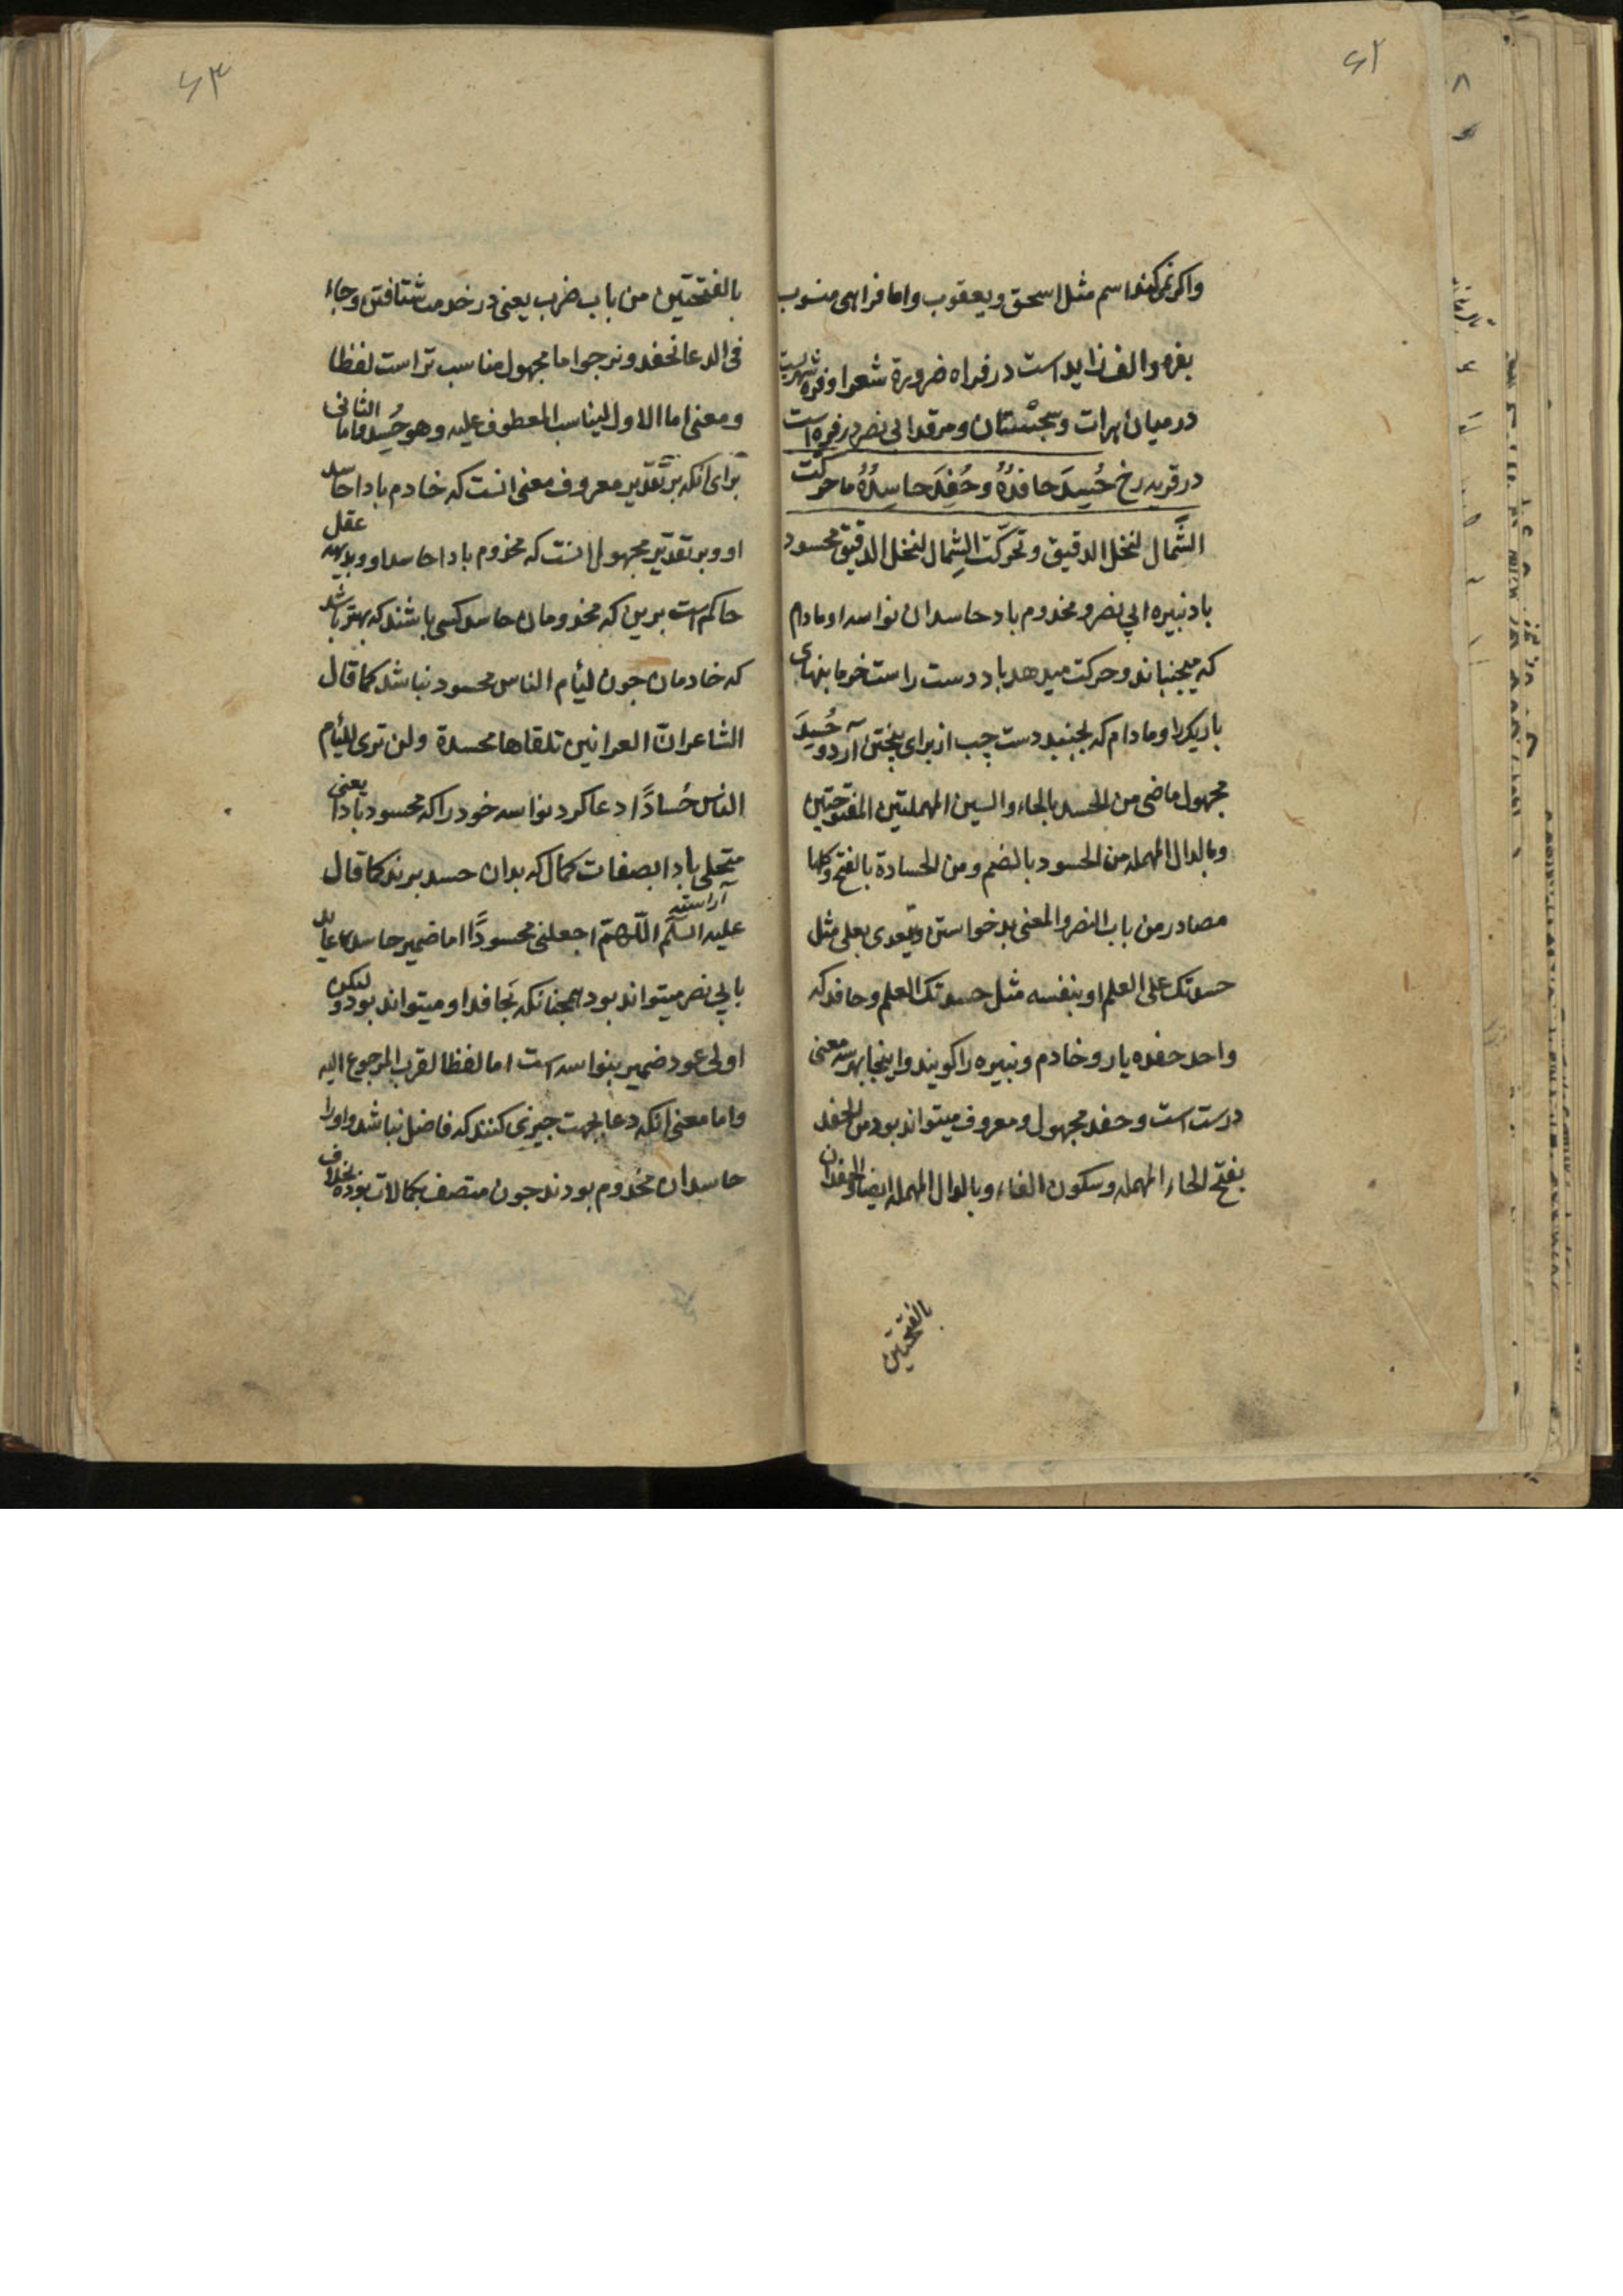 ۶۲
واکر نمی کند اسم مثل اسحق و یعقوب و اما فراهی منسوب
بفره و الف زاید است در فراه ضرورة شعر او فره شهریست
در میان هرات و سجستان و مرقد ابی نصر در فره است
در قریه رخ حُسِدَ حافدُهُ وحُفِدَ حاسِدُهُ ما حرکت
الشَّمال لنخل الدقیق و تحرکت الشِمال لنخل الدقیق محسود
باد نبیره ابی نصر و مخدوم باد حاسدان نواسه او مادام
که میجنباند و حرکت میدهد باد دست راست خرما بنهای
باریک را و مادام که بجنبد دست چپ از برای بیختن آرد و حُسِدَ
مجهول ماضی من الحسد بالحاء والسین المهملتین المفتوحتین
وبالدال المهمله من الحسود بالضم ومن الحسادة بالفتح وکلها
مصادر من باب النصر والمعنی بد خواستن ویتعدی بعلی مثل
حسدتک علی العلم او بنفسه مثل حسدتک العلم وحافد که
واحد حفده یار و خادم و نبیره را کویند و اینجا بهر سه معنی
درست است و حفد مجهول و معروف میتواند بود من الحفد
بفتح الحاء المهمله وسکون الفاء وبالدال المهمله ایضا والحفدان
بالفتحتین
۶۳
بالفتحتین من باب ضرب یعنی در خدمت شتافتن وجاء
فی الدعا نحفد ونرجوا اما مجهول مناسب تر است لفظا
ومعنی اما الاول لیناسب المعطوف علیه وهو حُسِدَ واما الثانی
برای انکه بر تقدیر معروف معنی انست که خادم بادا حاسد
او و بر تقدیر مجهول انست که مخدوم بادا حاسد او و بدیهه عقل
حاکم است برین که مخدومان حاسد کسی باشند که بهتر باشد
که خادمان جون لیأم الناس محسود نباشد کما قال
الشاعر ان العرانین تلقاها محسدة ولن تری للیأم
الناس حُسادًا دعا کرد نواسه خود را که محسود بادا یعنی
متحلی بادا بصفات کمال که بدان حسد برند کما قال
آراسته
علیه السلم اللّهمّ اجعلنی محسودًا اما ضمیر حاسده عاید
بابی نصر میتواند بود همجنانکه بحافد او میتواند بود و لیکن
اولی عود ضمیر بنواسه است اما لفظا لقرب المرجوع الیه
واما معنی انکه دعا بجهت جیزی کنند که فاضل نباشد و او را
حاسدان مخدوم بودند جون متصف بکمالات بوده بخلاف